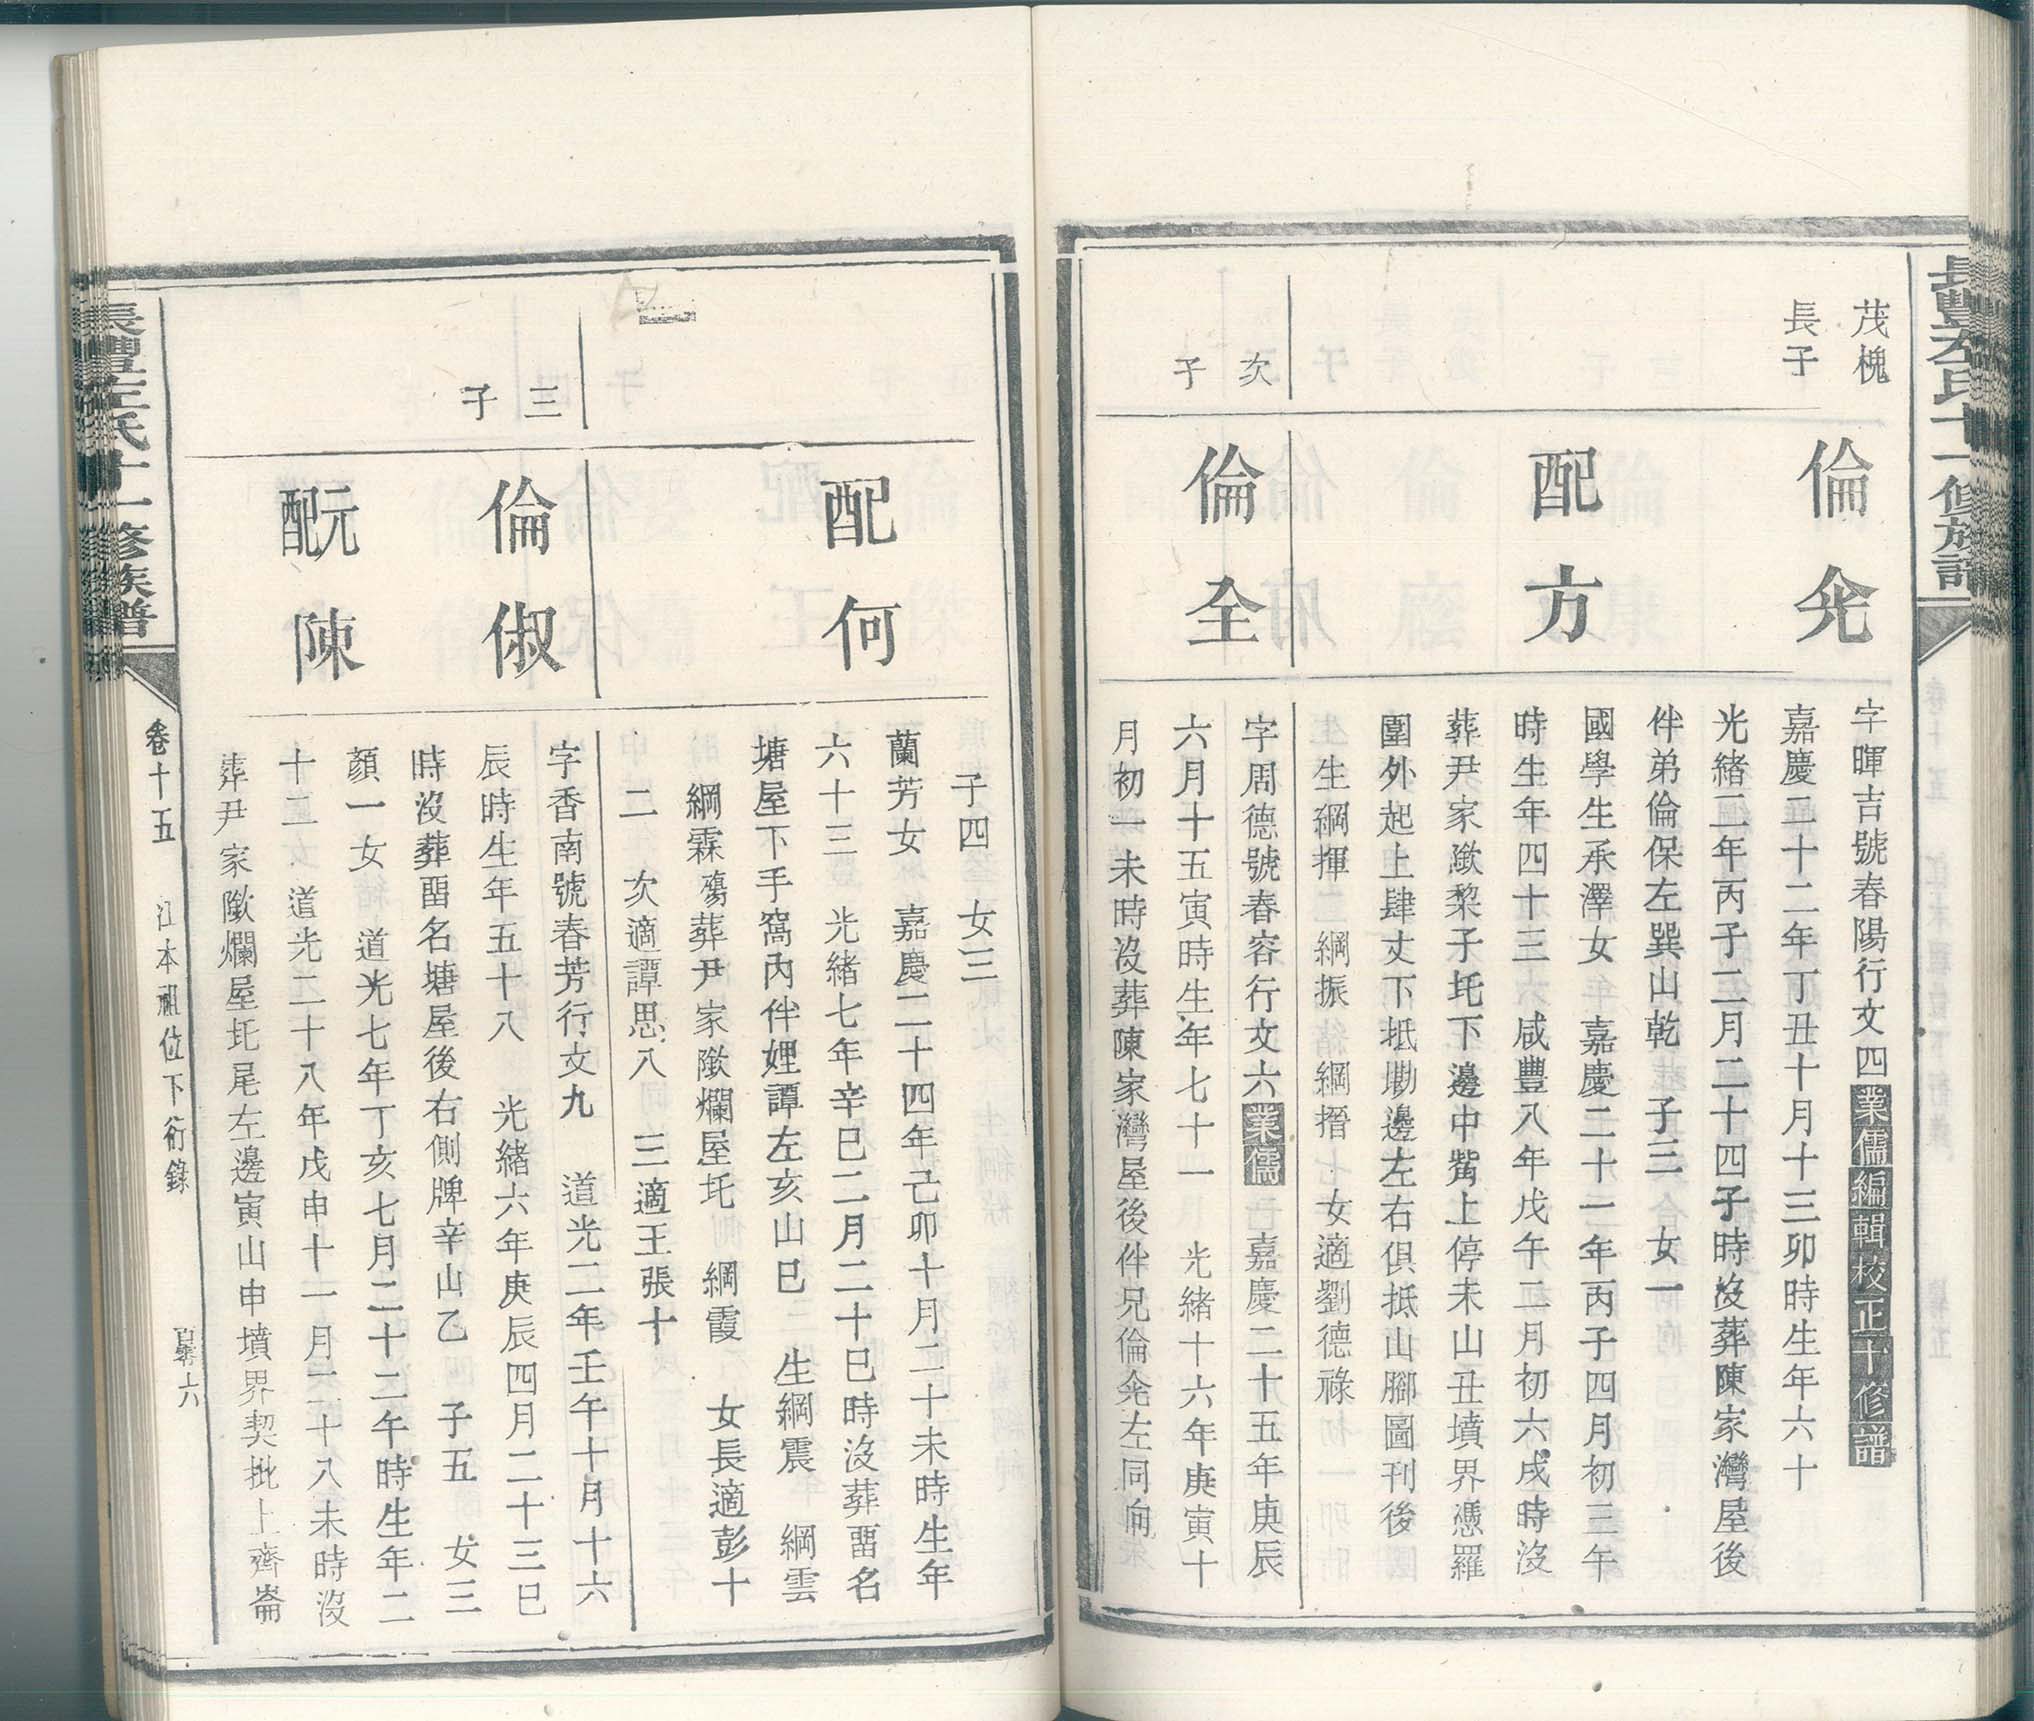 長豐左氏十一修族譜
茂槐
長子
倫㒶
字暉吉號春陽行文四業儒編輯校正十修譜
嘉慶二十二年丁丑十月十三卯時生年六十
光緒二年丙子二月二十四子時沒葬陳家灣屋後
伴弟倫保左巽山乾　子三　女一
配方
國學生承澤女　嘉慶二十一年丙子四月初三午
時生年四十三　咸豐八年戊午二月初六戌時沒
葬尹家𡼏棃子圫下邊中嘴上停未山丑墳界憑羅
圍外起上肆丈下抵墈邊左右俱抵山腳圖刊後
生綱揮　綱振　綱搢　女適劉德祿
次子
倫全
字周德號春容行文六業儒　嘉慶二十五年庚辰
六月十五寅時生年七十一　光緒十六年庚寅十
月初一未時沒葬陳家灣屋後伴兄倫㒶左同向
子四　女三
配何
蘭芳女　嘉慶二十四年己卯十月二十未時生年
六十三　光緒七年辛巳二月二十巳時沒葬畱名
塘屋下手窩內伴娌譚左亥山巳　生綱震　綱雲
綱霖殤葬尹家𡼏爛屋圫　綱霞　女長適彭十
二　次適譚思八　三適王張十
三子
倫俶
字香南號春芳行文九　道光二年壬午十月十六
辰時生年五十八　光緒六年庚辰四月二十三巳
時沒葬畱名塘屋後右側牌辛山乙　子五　女三
元配陳
顏一女　道光七年丁亥七月二十二午時生年二
十二　道光二十八年戊申十一月二十八未時沒
葬尹家𡼏爛屋圫尾左邊寅山申墳界契批上齊崙
長豐左氏十一修族譜
卷十五　江本祖位下衍錄　六